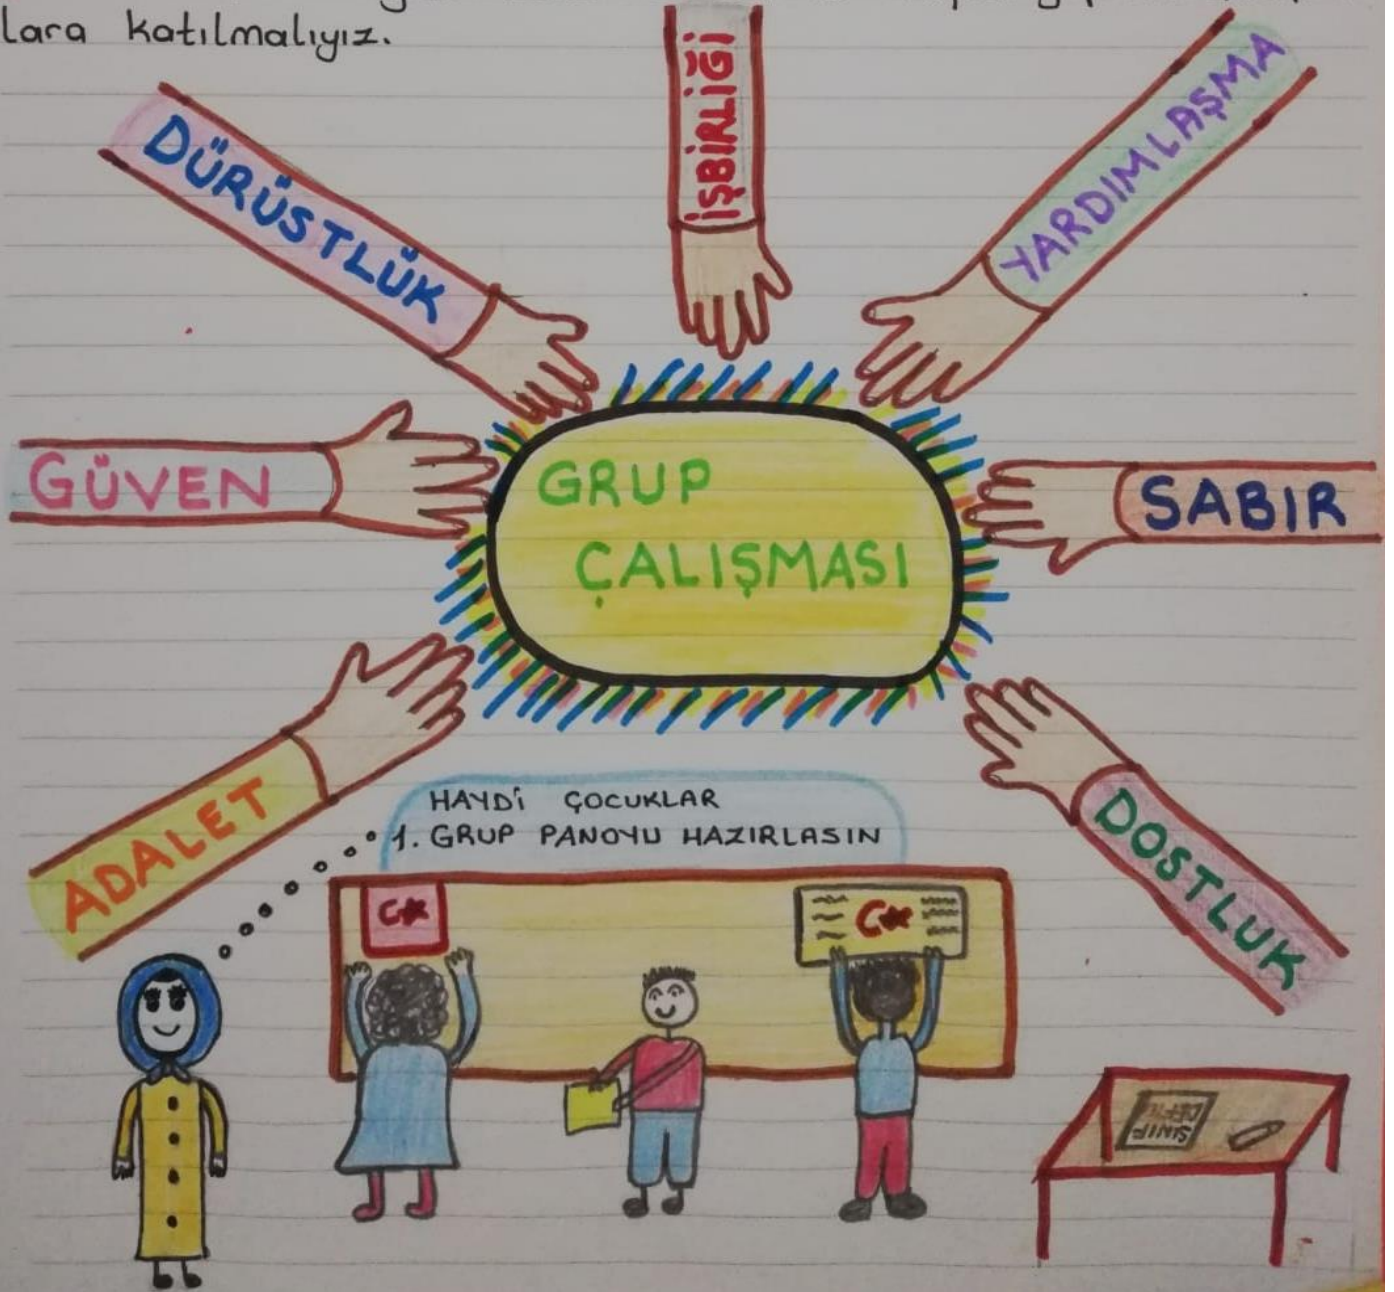 lara katılmalıyız.
İŞBİRLİĞİ
YARDIMLAŞMA
DÜRÜSTLÜK
GÜVEN
GRUP
ÇALIŞMASI
SABIR
ADALET
DOSTLUK
HAYDİ ÇOCUKLAR
1. GRUP PANOYU HAZIRLASIN
SINIF